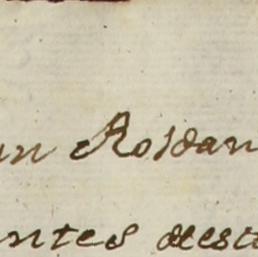 un Roldan
ntes dest